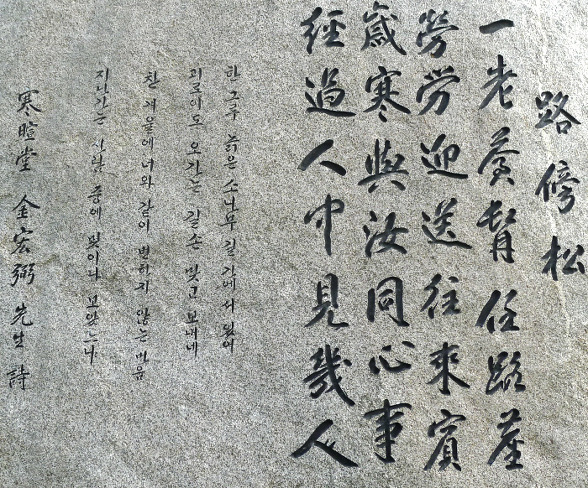 路傍松
一老蒼髯任路塵
勞勞迎送往來賓
歲寒與汝同心事
經過人中見幾人
한 그루 늙은 소나무 길가에 서 있어
괴로이도 오가는 길손 맞고 보내네
찬 겨울에 너와 같이 변하지 않는 마음
지나가는 사람 중에 몇이나 보았느냐
寒暄堂 金宏弼 先生 詩